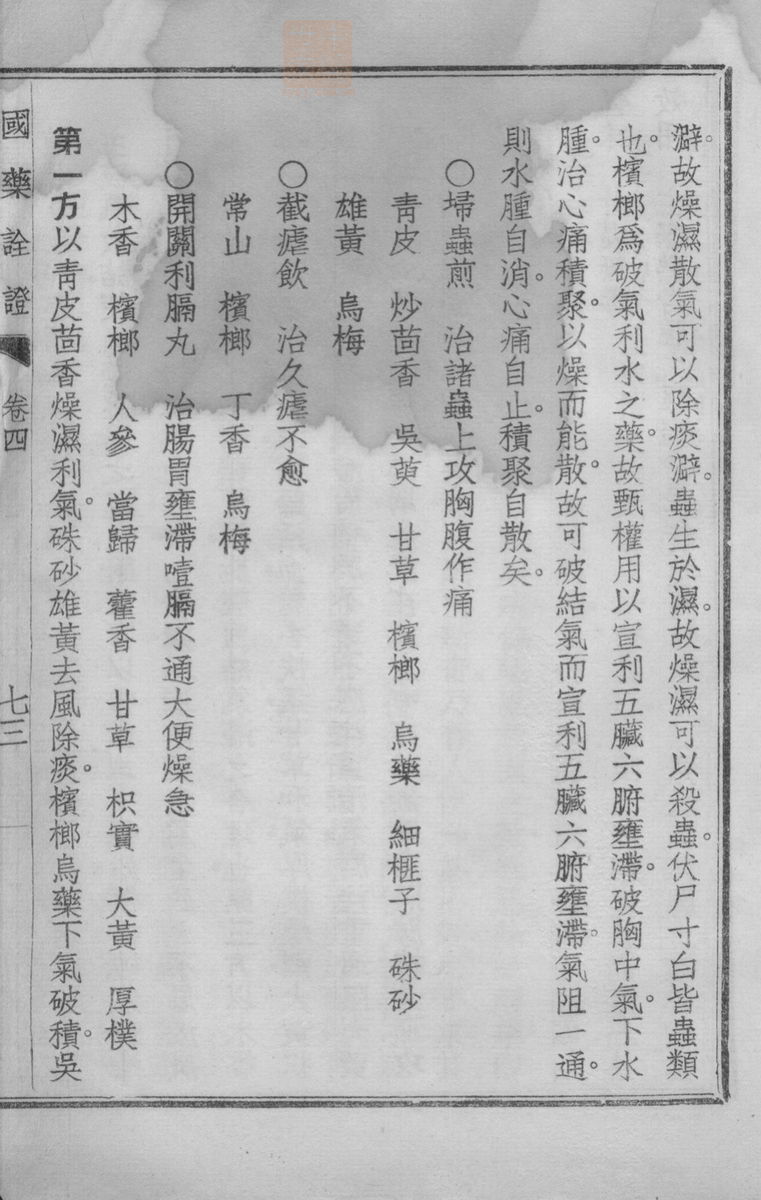 澼。故燥濕散氣可以除痰澼。蟲生於濕。故燥濕可以殺蟲。伏尸寸白皆蟲類
也。檳榔爲破氣利水之藥。故甄權用以宣利五臟六腑壅滯。破胸中氣。下水
腫。治心痛積聚。以燥而能散。故可破結氣而宣利五臟六腑壅滯。氣阻一通。
則水腫自消。心痛自止。積聚自散矣。
○埽蟲煎　治諸蟲上攻胸腹作痛
靑皮　炒茴香　吳萸　甘草　檳榔　烏藥　細榧子　硃砂
雄黃　烏梅
○截瘧飲　治久瘧不愈
常山　檳榔　丁香　烏梅
○開關利膈丸　治腸胃壅滯噎膈不通大便燥急
木香　檳榔　人參　當歸　藿香　甘草　枳實　大黃　厚樸
第一方以靑皮茴香燥濕利氣。硃砂雄黃去風除痰。檳榔烏藥下氣破積。吳
國藥詮證　卷四　七三